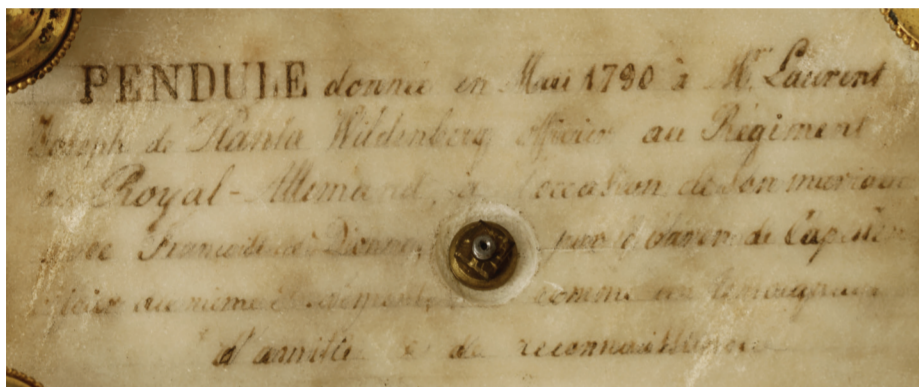 PENDULE donnée en Mai 1790 à Mr. Laurent
Joseph de Planta Wildenberg officier au Régiment
de Royal-Allemand, à l'occasion de son mariage
avec de par le de
au même Régiment, comme un témoignage
d'amitié et de reconnaissance